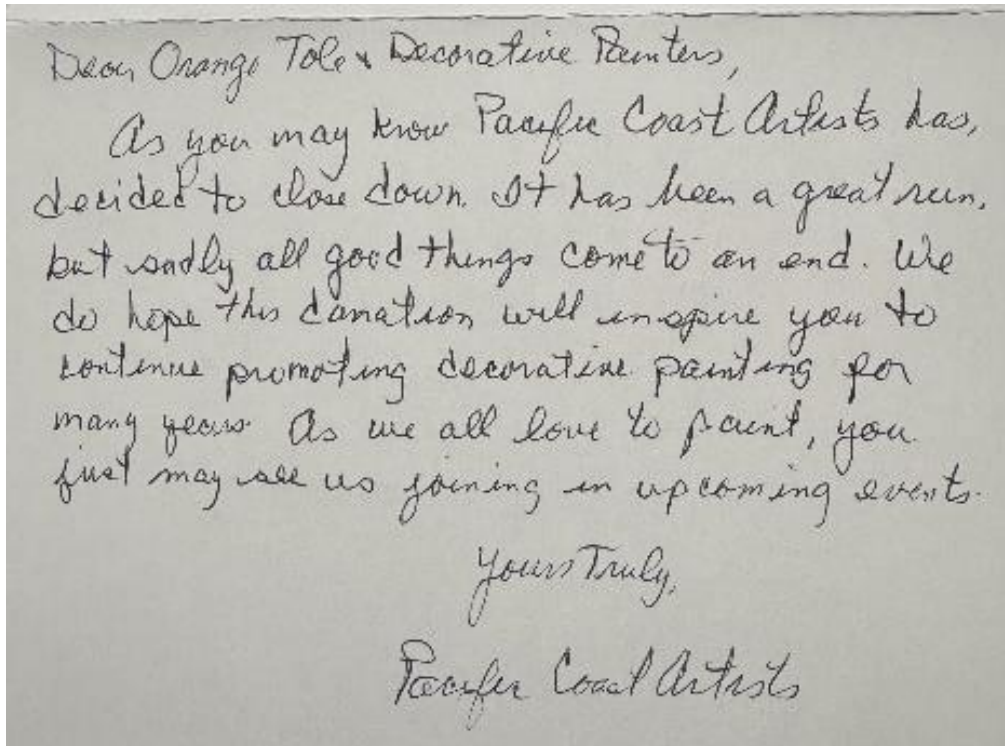 Dear Orange Tole & Decorative Painters,
As you may know Pacific Coast Artists has,
decided to close down. It has been a great run,
but sadly all good things come to an end. We
do hope this donation will inspire you to
continue promoting decorative painting for
many years. As we all love to paint, you
just may see us joining in upcoming events.
Yours Truly,
Pacific Coast Artists